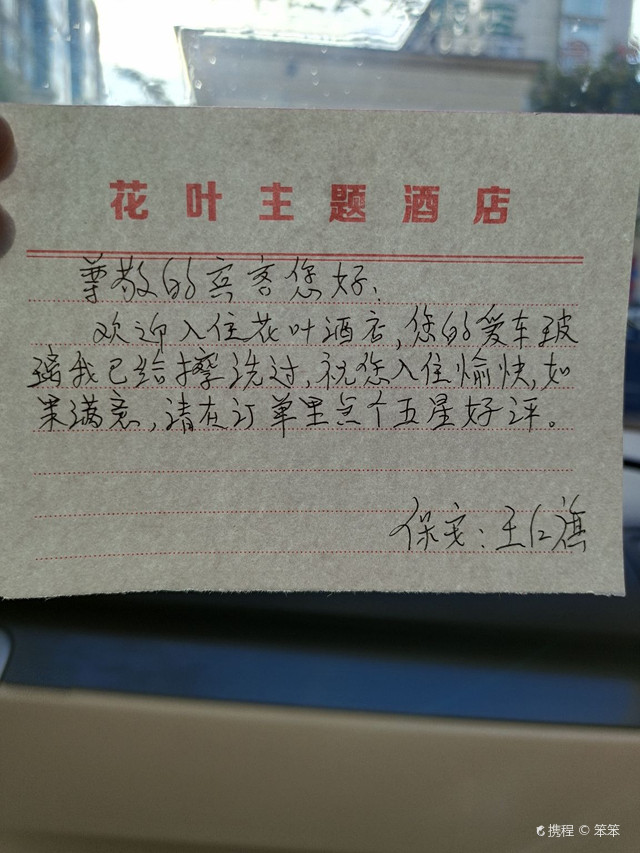 花叶主题酒店
尊敬的宾客您好:
欢迎入住花叶酒店,您的爱车玻
璃我已给擦洗过,祝您入住愉快,如
果满意,请在订单里点个五星好评。
保安:王红旗
携程 © 笨笨